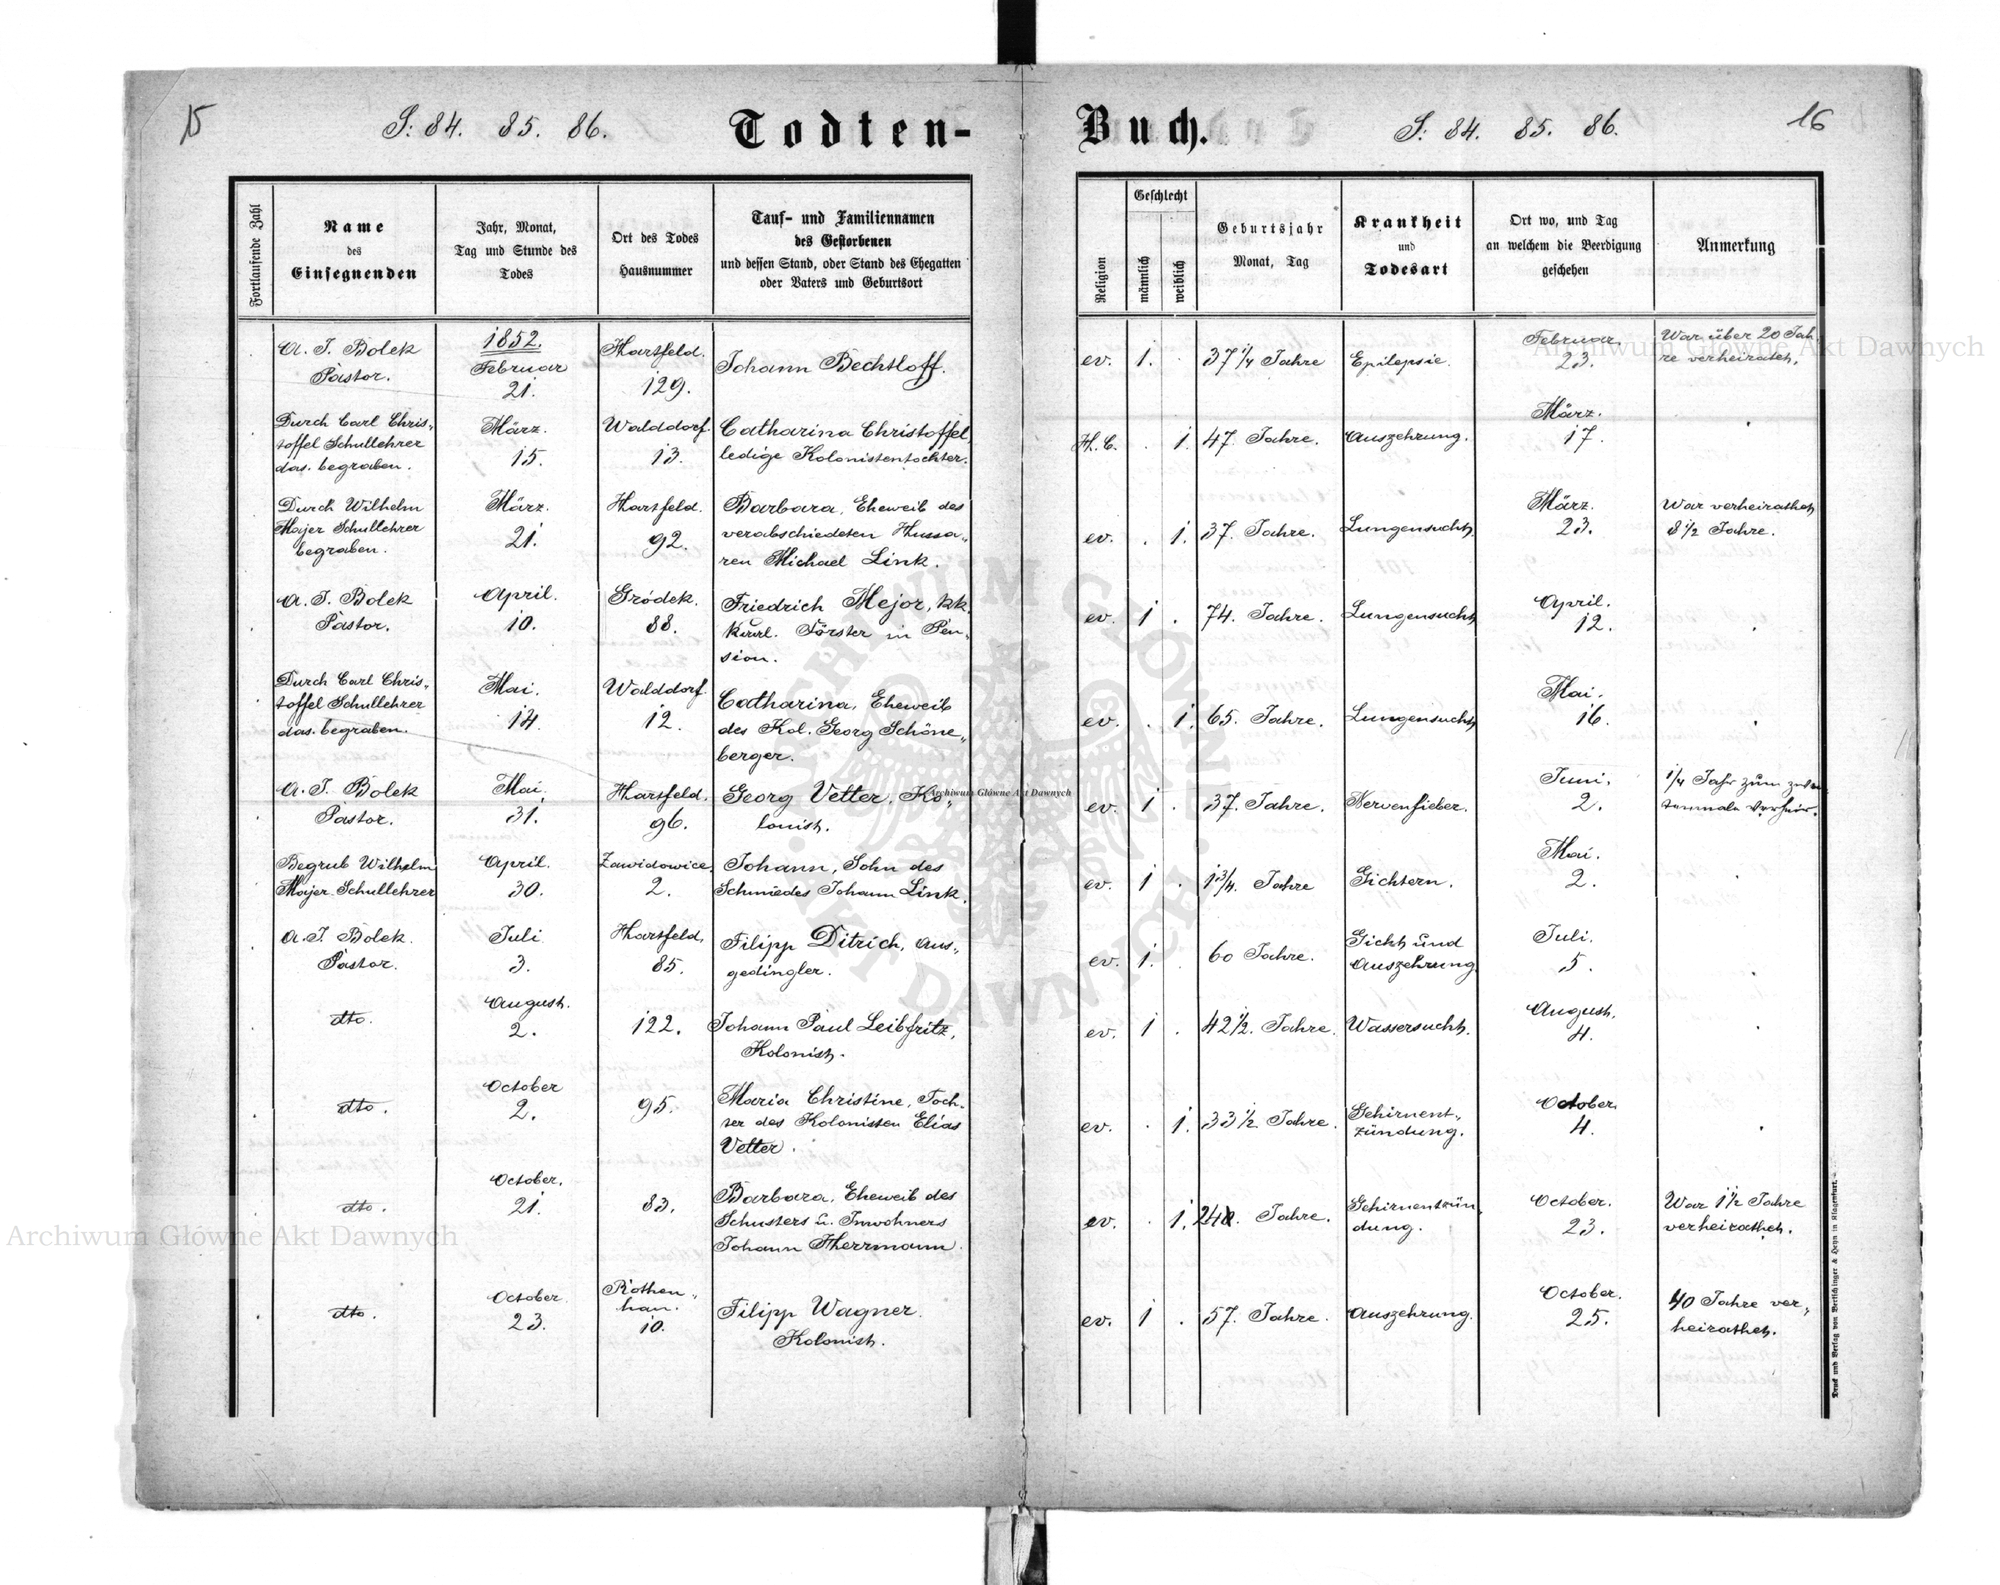 15
S: 84. 85. 86.
Todten-
Buch.
S: 84. 85. 86.
16
Fortlaufende Zahl
Name
des
Einsegnenden
Jahr, Monat,
Tag und Stunde des
Todes
Ort des Todes
Hausnummer
Tauf- und Familiennamen
des Gestorbenen
und dessen Stand, oder Stand des Ehegatten
oder Vaters und Geburtsort
Religion
Geschlecht
männlich
weiblich
Geburtsjahr
Monat, Tag
Krankheit
und
Todesart
Ort wo, und Tag
an welchem die Beerdigung
geschehen
Anmerkung
A. J. Bolek
Pastor.
1852.
Februar
21.
Hartfeld.
129.
Johann Bechtloff.
ev.
1.
37 1/4 Jahre
Epilepsie.
Februar.
23.
War über 20 Jah
re verheiratet.
Durch Carl Chris„
toffel Schullehrer
das. begraben.
März.
15.
Walddorf.
13.
Catharina Christoffel,
ledige Kolonistentochter.
H. C.
.
1.
47. Jahre.
Auszehrung.
März.
17.
Durch Wilhelm
Majer Schullehrer
begraben.
März.
21.
Hartfeld.
92.
Barbara, Eheweib des
verabschiedeten Hussa„
ren Michael Link.
ev.
.
1.
37. Jahre.
Lungensucht
März.
23.
War verheirathet
8 1/2 Jahre.
A. J. Bolek
Pastor.
April.
10.
Gródek.
88.
Friedrich Mejor, kk.
Förster in Pen„
sion.
ev.
1
.
74. Jahre.
Lungensucht
April.
12.
Durch Carl Chris„
toffel Schullehrer
das. begraben.
Mai.
14.
Walddorf.
12.
Catharina, Eheweib
des Kol. Georg Schöne„
berger.
ev.
.
1.
65. Jahre.
Lungensucht
Mai.
16.
A. J. Bolek
Pastor.
Mai.
31.
Hartfeld.
96.
Georg Vetter, Ko„
lonist.
ev.
1
.
37. Jahre.
Nervenfieber.
Juni.
2.
1/4 Jahr zum
verheir.
Begrub Wilhelm
Majer Schullehrer
April.
30.
Zawidowice
2.
Johann, Sohn des
Schmiedes Johann Link.
ev.
1
.
1 3/4. Jahre
Gichtern.
Mai.
2.
A. J. Bolek.
Pastor.
Juli
3.
Hartfeld.
85.
Filipp Ditrich, Aus„
gedingler.
ev.
1.
60 Jahre.
Gicht und
Auszehrung
Juli.
5.
dto.
August.
2.
122.
Johann Paul Leibfritz,
Kolonist.
ev.
1
.
42 1/2. Jahre.
Wassersucht.
August.
4.
dto.
October
2.
95.
Maria Christine, Toch„
ter des Kolonisten Elias
Vetter.
ev.
.
1.
33 1/2 Jahre.
Gehirnent„
zündung.
October.
4.
dto.
October.
21.
83.
Barbara, Eheweib des
Schusters u. Inwohners
Johann Herrmann.
ev.
.
1.
Jahre.
Gehirnentzün„
dung.
October.
23.
War 1 1/2 Jahre
verheirathet.
dto.
October
23.
Rothen„
han.
10.
Filipp Wagner.
Kolonist.
ev.
1
.
57. Jahre.
Auszehrung.
October.
25.
40 Jahre ver„
heirathet.
Druck und Verlag von Bertschinger & Heyn in Klagenfurt.
Archiwum Główne Akt Dawnych
Archiwum Główne Akt Dawnych
Archiwum Główne Akt Dawnych
ARCHIWUM GŁÓWNE AKT DAWNYCH